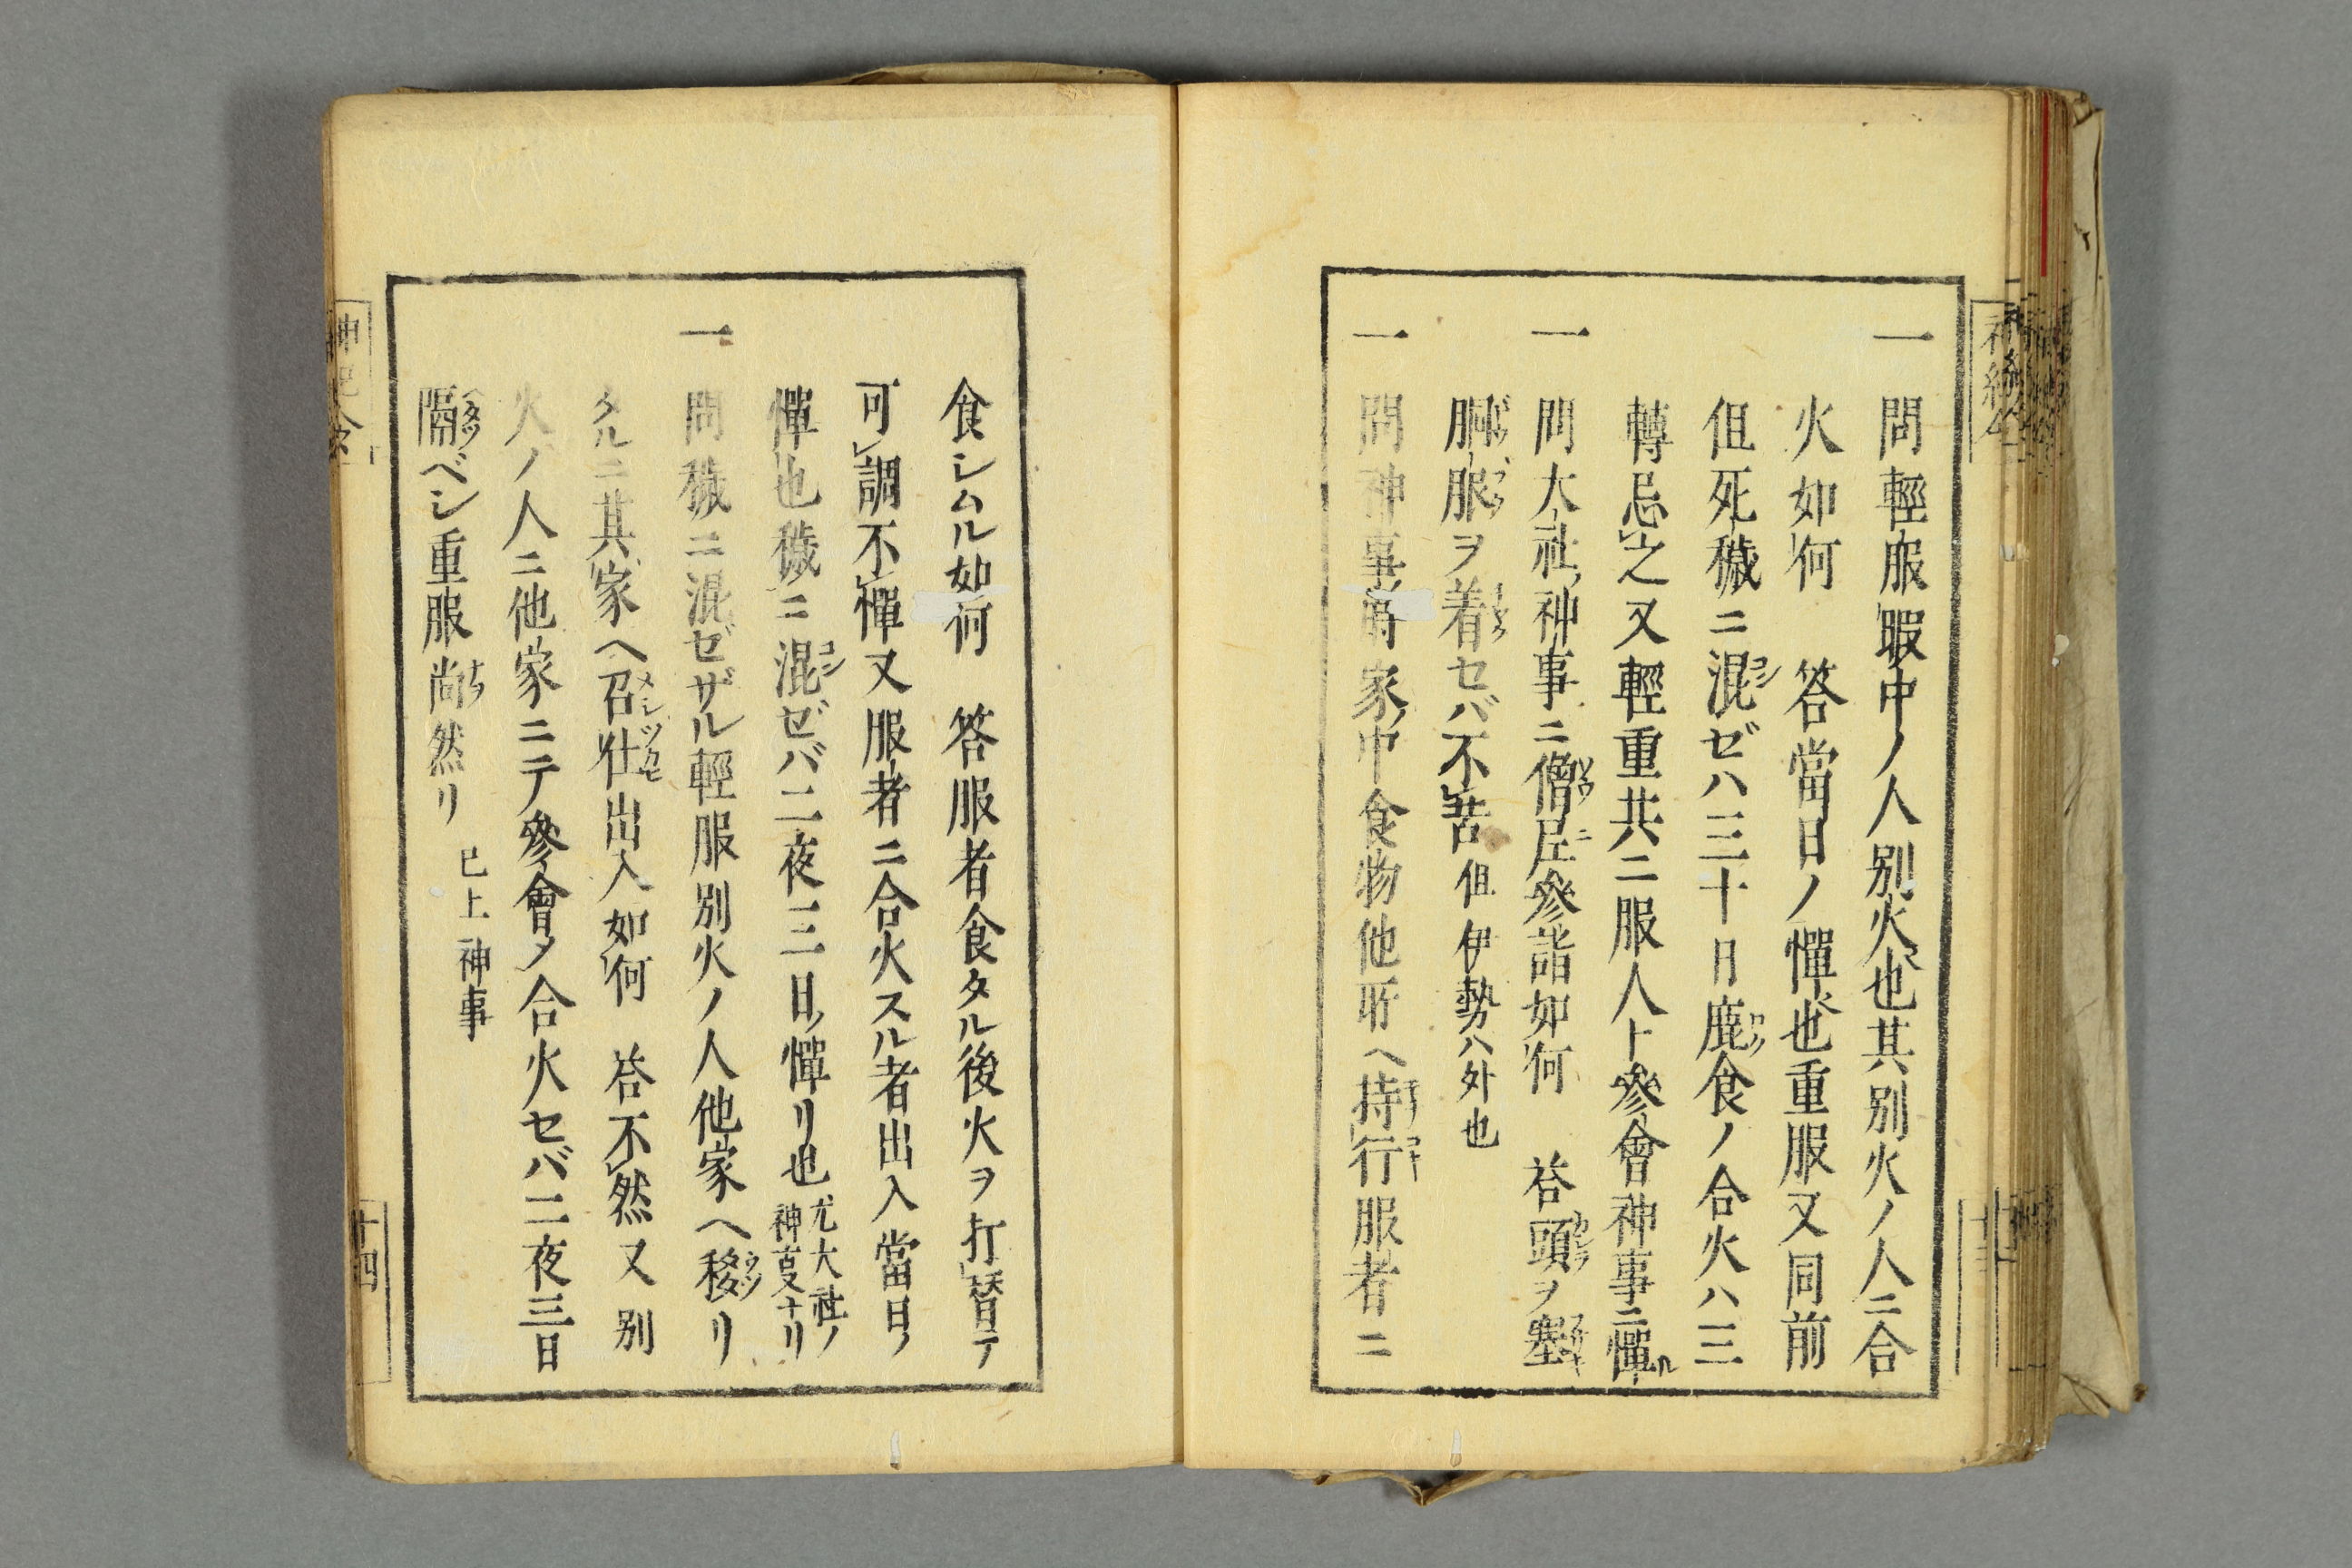 一 問輕服暇中ノ人別火也其別火ノ人ニ合
火如何 答當日ノ憚也重服又同前
但死穢ニ混ゼハ三十日鹿食ノ合火ハ三
轉忌之又輕重共ニ服人ト參會神事ニ憚ル
一 問大社神事ニ僧尼參詣如何 答頭ヲ塞
胴服ヲ着セバ不苦但伊勢ハ外也
一 問神事前家中食物他所ヘ持行服者ニ
食シムル如何 答服者食タル後火ヲ打替テ
可調不憚又服者ニ合火スル者出入當日ノ
憚也穢ニ混ゼバ二夜三日ノ憚リ也 尤大社ノ
神事ナリ
一 問穢ニ混ゼザル輕服別火ノ人他家ヘ移リ
タルニ其家ヘ召仕出入如何 答不然又別
火ノ人ニ他家ニテ參會メ合火セバ二夜三日
隔ベシ重服尚然リ 已上神事
十四